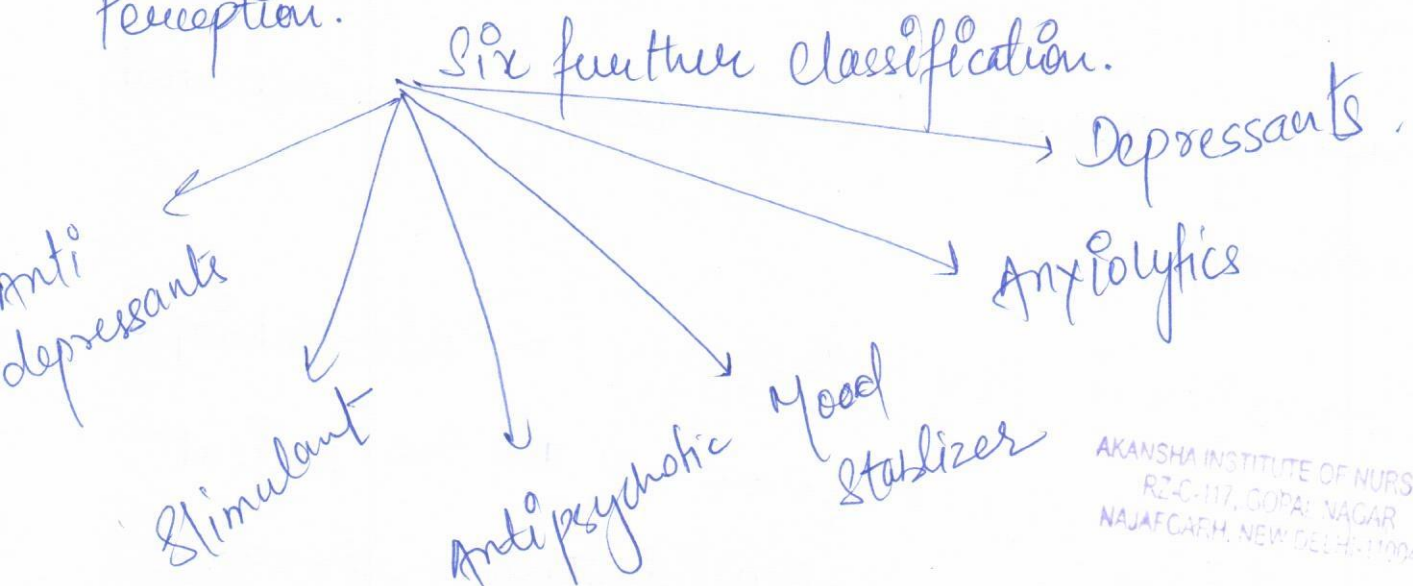 Perception.
Six further classification.
Depressants.
Anxiolytics
Anti
depressants
Mood
Stablizer
Stimulant
Antipsychotic
AKANSHA INSTITUTE OF NURS
RZ-C-117, GOPAL NAGAR
NAJAFGARH, NEW DELHI-